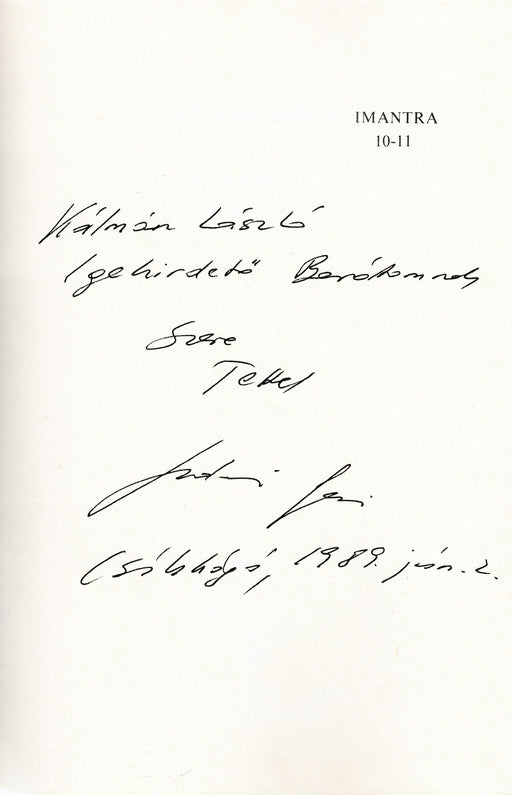 IMANTRA
10-11
Kálmán László
Igehirdető Barátomnak
Szere
Tettel
Jenő
1989. jún. 2.